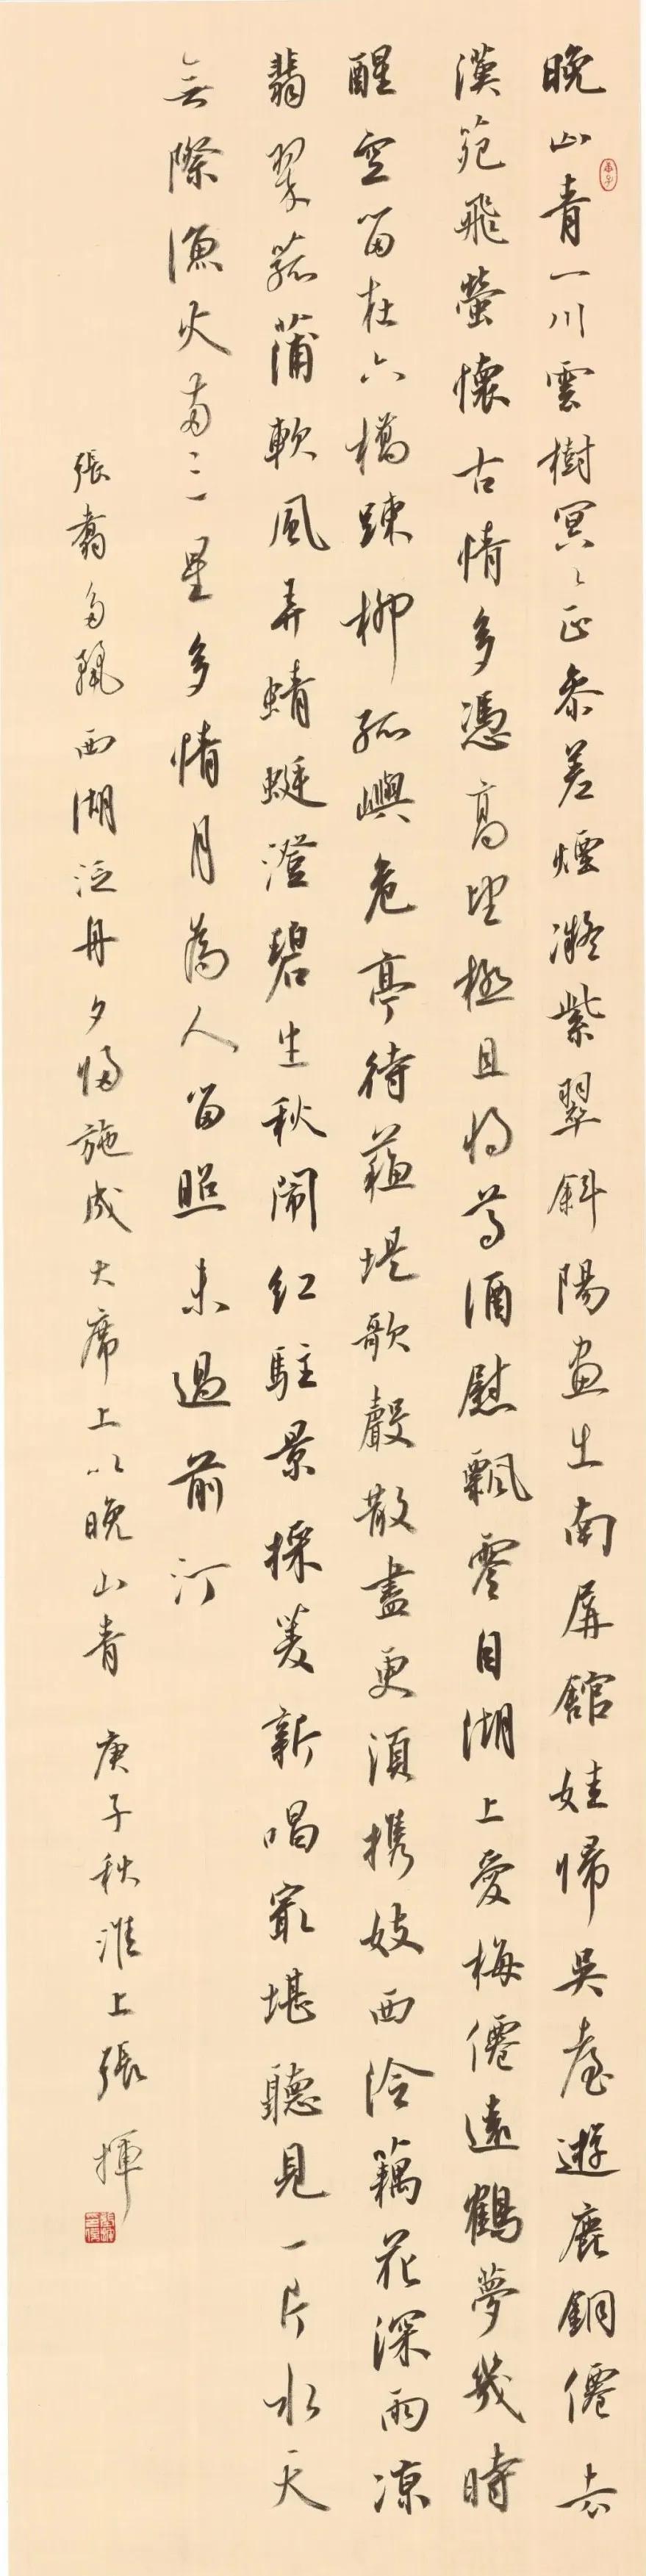 晚山青一川雲樹冥〻正參差煙凝紫翠斜陽畫出南屏館娃歸吳臺遊鹿銅僊去
漢苑飛螢懷古情多憑高望極且將尊酒慰飄零自湖上愛梅僊遠鶴夢幾時
醒空留在六橋疎柳孤嶼危亭待蘇堤歌聲散盡更須攜妓西泠藕花深雨涼
翡翠菰蒲軟風弄蜻蜓澄碧生秋鬧紅駐景採菱新唱最堪聽見一片水天
無際漁火兩三星多情月為人留照未過前汀
張翥多麗西湖泛舟夕歸施成大席上以晚山青 庚子秋淮上張揮
庚子